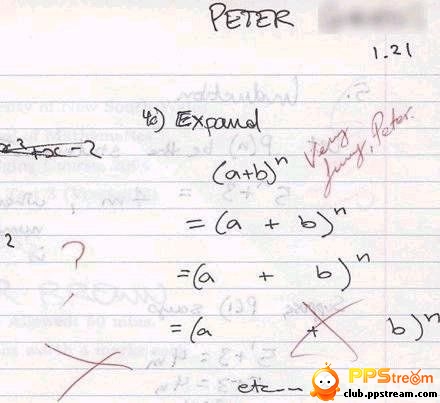 PETER
1.21
4c) Expand
(a+b)^n
Very funny, Peter.
= (a + b)^n
= (a + b)^n
?
= (a + b)^n
etc...
PPStream
club.ppstream.com